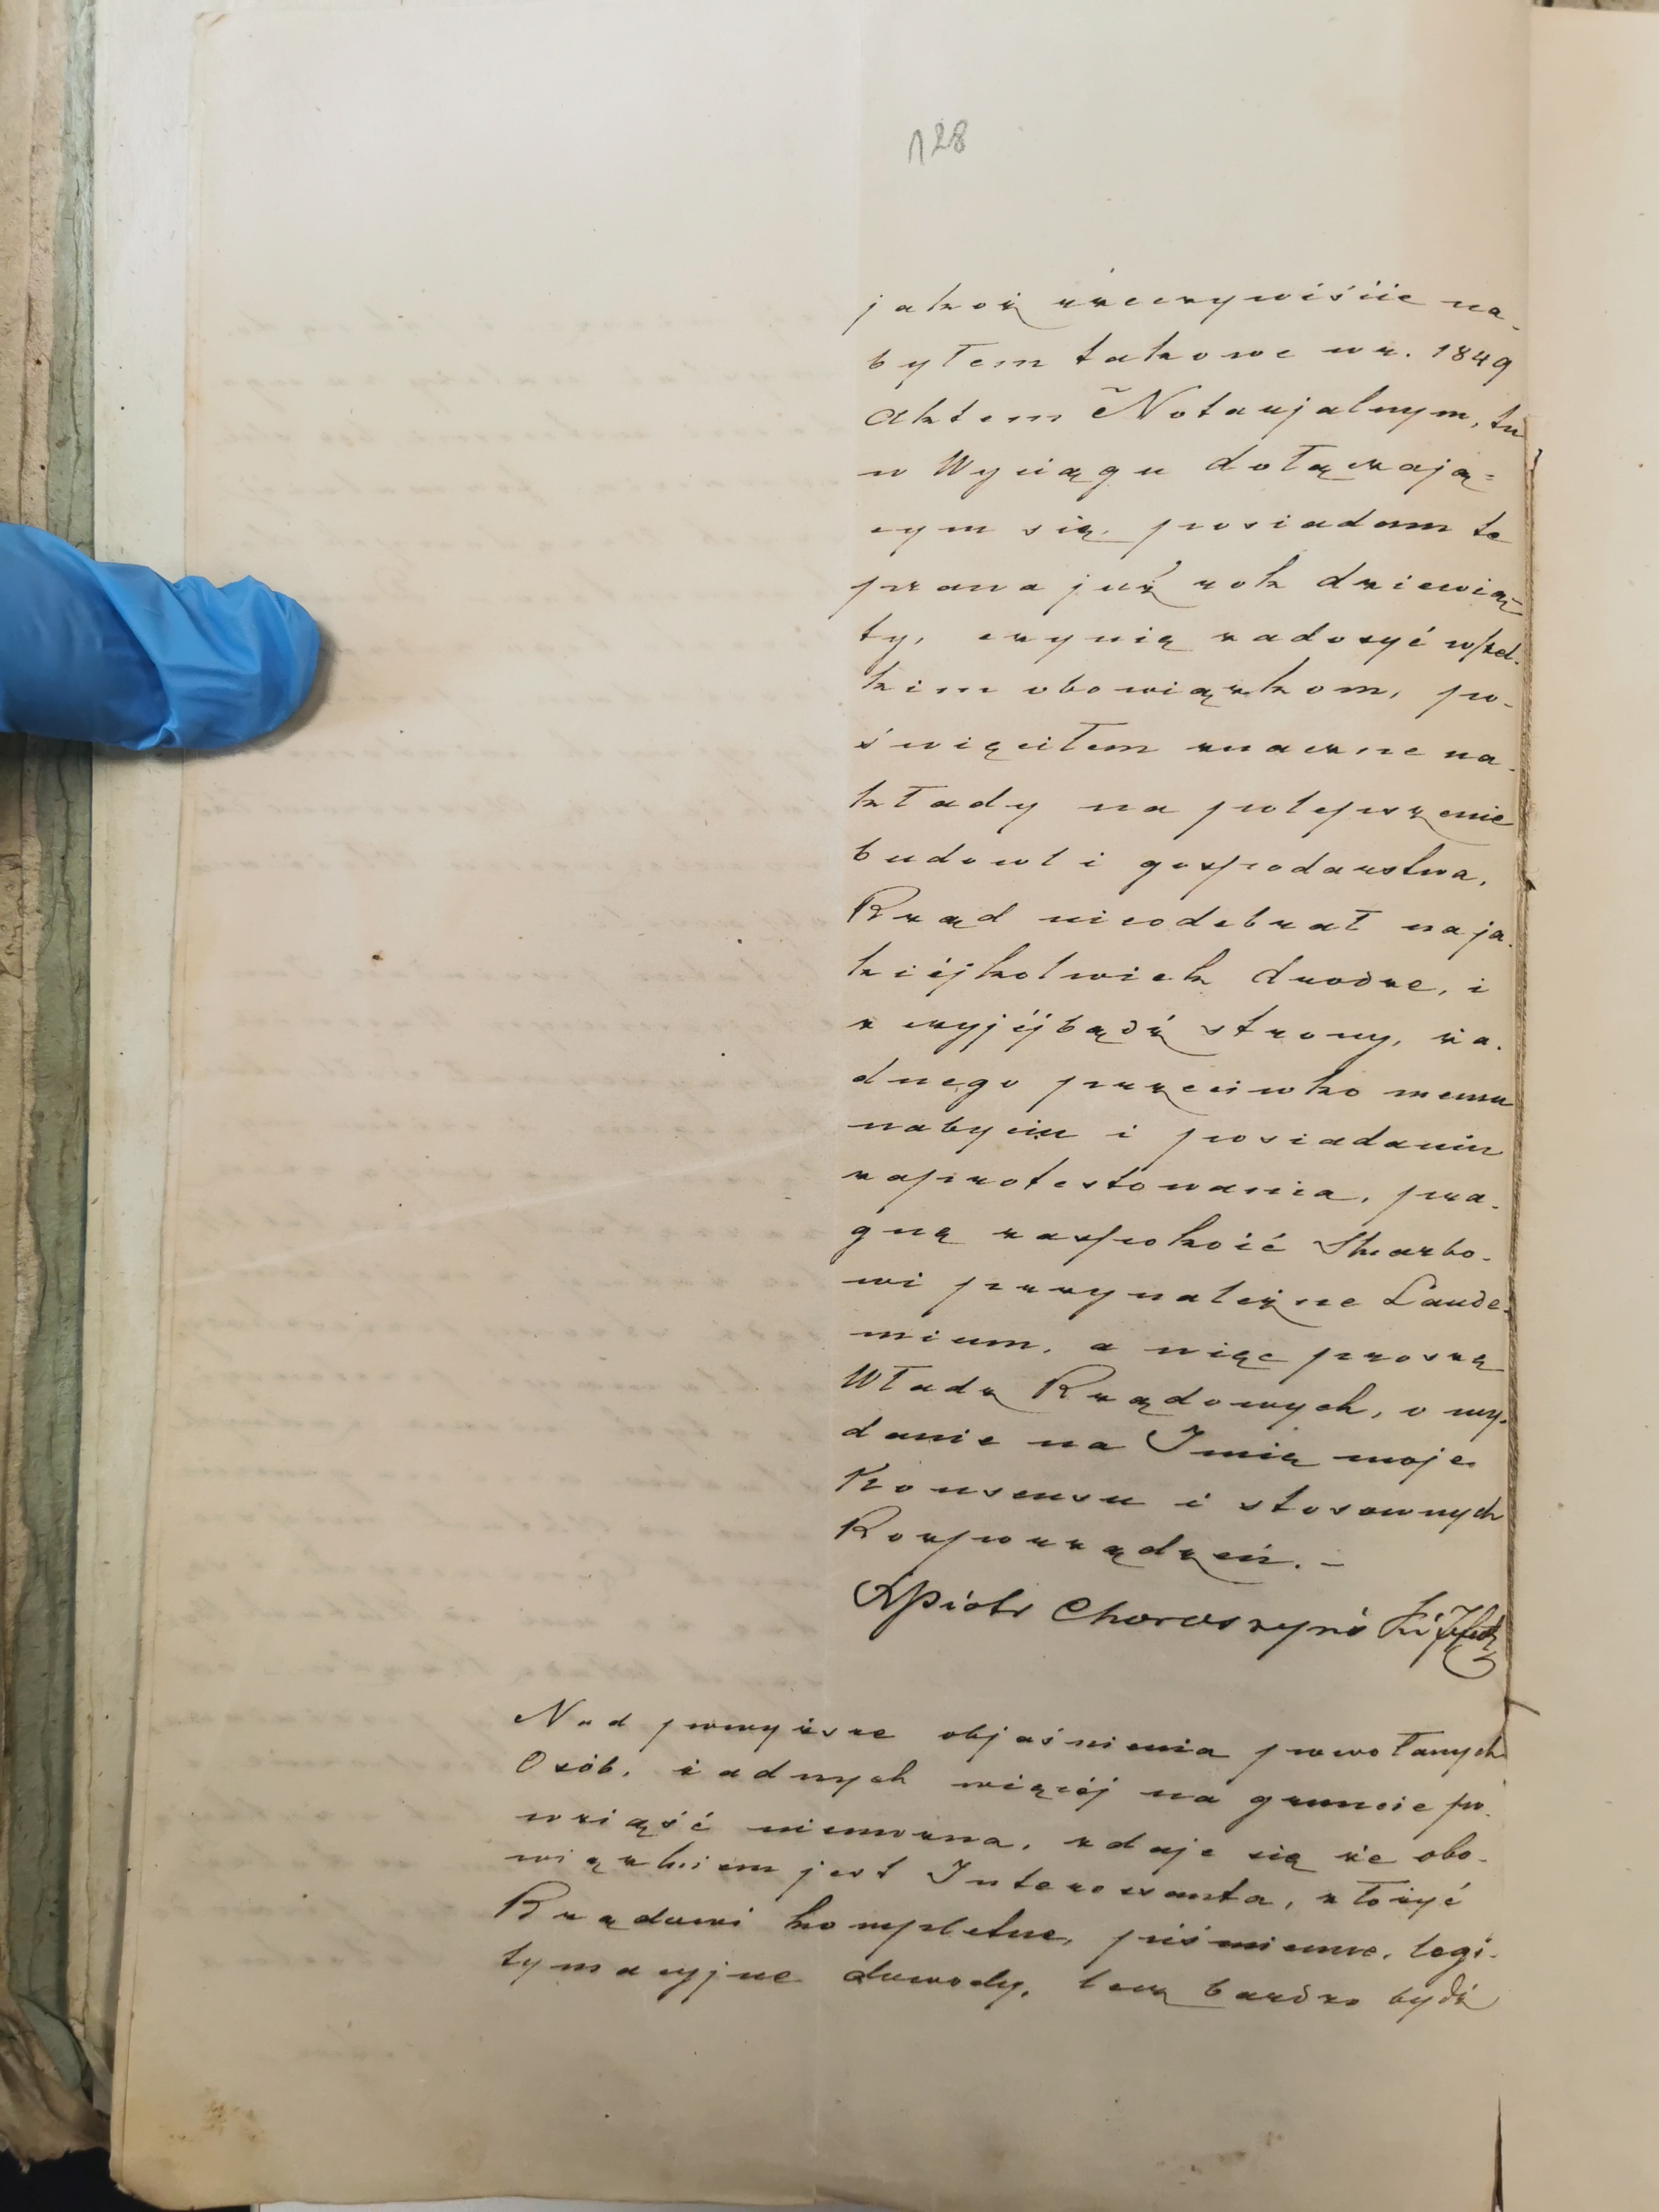 128
jakoż rzeczywiście na-
byłem takowe w r. 1849
Aktem Notarjalnym, tu
w Wyciągu dołączają=
cym się, posiadam te
prawa już rok dziewią-
ty, czynię zadosyć wszel-
kim obowiązkom, po-
święciłem znaczne na-
kłady na polepszenie
budowl i gospodarstwa,
Rząd nieodebrał na ja-
kiéjkolwiek drodze, i
z czyjéjbądź strony, ża-
dnego przeciwko memu
nabyciu i posiadaniu
zaprotestowania, pra-
gnę zaspokoić Skarbo-
wi przynależne Laude-
mium, a więc proszę
Władz Rządowych, o wy-
danie na Imię moje
Konsensu i stosownych
Rozporządzeń. –
Piotr Choroszyński
Nad powyższe objaśnienia powołanych
Osób, żadnych więcéj na gruncie po-
wziąść niemożna, zdaje się że obo-
wiązkiem jest Interesanta, złożyć
Rządowi kompletne, piśmienne, legi-
tymacyjne dowody, lecz bardzo bydź